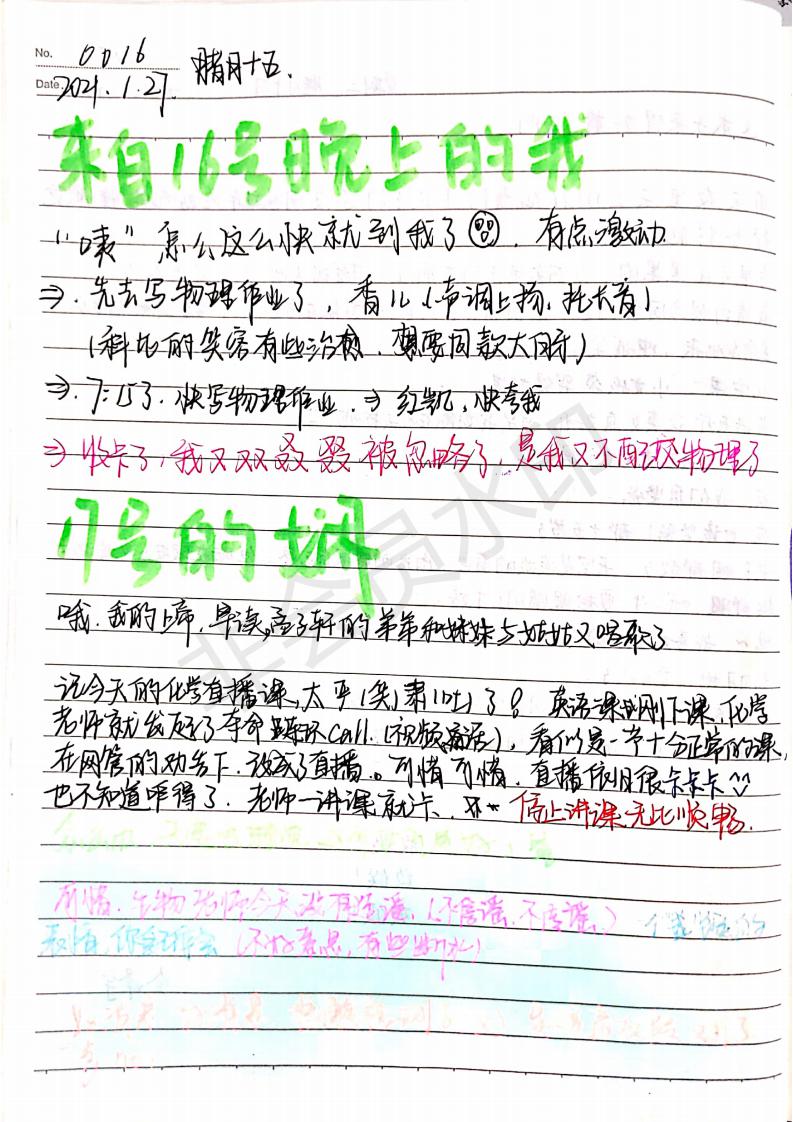 No. 0016
Date. 2021.1.27. 腊月十五.
来自16号晚上的我
“咦”怎么这么快就到我了 有点激动
⇒. 先去写物理作业了, 香儿(声调上扬,拖长音)
(科比的笑容有些治愈.想要同款大
⇒. 7:15了.快写物理作业. ⇒ 红凯,快夸我
⇒ 收卡了,我又双叒叕被忽略了,是我又不配交物理了
17号的
哦.我的上帝.早读,孟子轩的弟弟和妹妹与姑姑又唱歌了
记今天的化学直播课,太平(笑)肃(吐)了! 英语课刚下课,化学
老师就发起了夺命连环call.(视频,看似是一节十分正常的课,
在网管的劝告下.改成了直播.可惜可惜.直播依旧很卡卡卡
也不知道咋得了.老师一讲课就卡、 停止讲课无比顺畅.
可惜.生物老师今天没有造谣.(不信谣.不传谣.)
表情,你自己体会(不好意思,有些
非会员水印